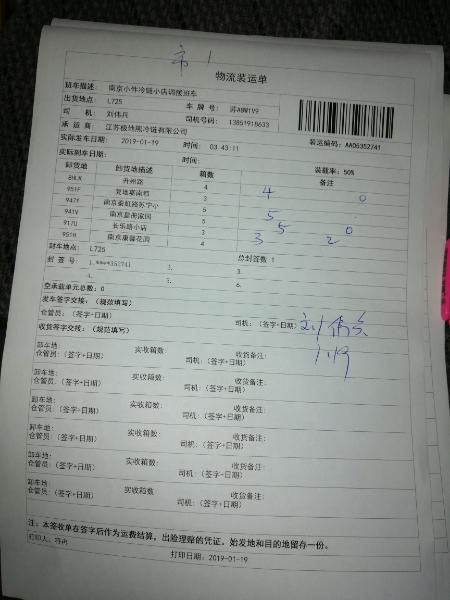 市1
物流装运单
班车描述： 南京小件冷链小店调拨班车
出货地点： L725 车 牌 号： 苏A8WTV9
司 机： 刘伟兵 司机号码： 13851918633
承 运 商： 江苏极地熊冷链有限公司 装运编码：AA06352741
实际发车日期： 2019-01-19 时间： 03:43:11
实际到车日期： 时间： 装载率：50%
卸货地 卸货地描述 箱数 备注
8HLK 丹州路 4 4 0
951F 昊地豪南档 3
947Y 南京秦虹路苏宁小 5 5
941V 南京皇册家园 5 5 0
917U 长乐路小店 3 3 2
951H 南京康馨花园 4
封车地点： L725 总封签数 1
封 签 号： 1.****352741 2. 3.
4. 5. 6.
空承载单元总数：0
发车签字交接：（规范填写）
仓管员：（签字+日期） 司机：（签字+日期） 刘伟兵
收货签字交接：（规范填写） 1.19
卸车地： 实收箱数： 收货备注：
仓管员：（签字+日期） 司机：（签字+日期）
卸车地： 实收箱数： 收货备注：
仓管员：（签字+日期） 司机：（签字+日期）
卸车地： 实收箱数： 收货备注：
仓管员：（签字+日期） 司机：（签字+日期）
卸车地： 实收箱数： 收货备注：
仓管员：（签字+日期） 司机：（签字+日期）
卸车地： 实收箱数： 收货备注：
仓管员：（签字+日期） 司机：（签字+日期）
卸车地： 实收箱数： 收货备注：
仓管员：（签字+日期） 司机：（签字+日期）
注：本签收单在签字后作为运费结算，出险理赔的凭证，始发地和目的地留存一份。
打印人：
打印日期：2019-01-19